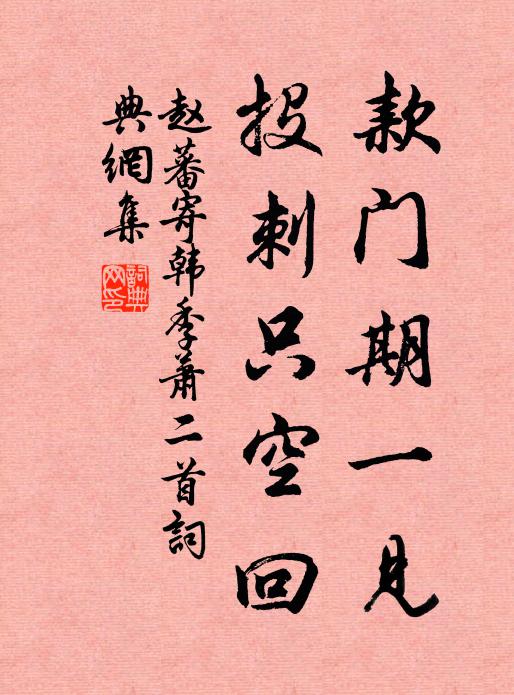 款门期一见
投刺只空回
赵蕃寄韩季萧二首词
典網集
詞典
网印